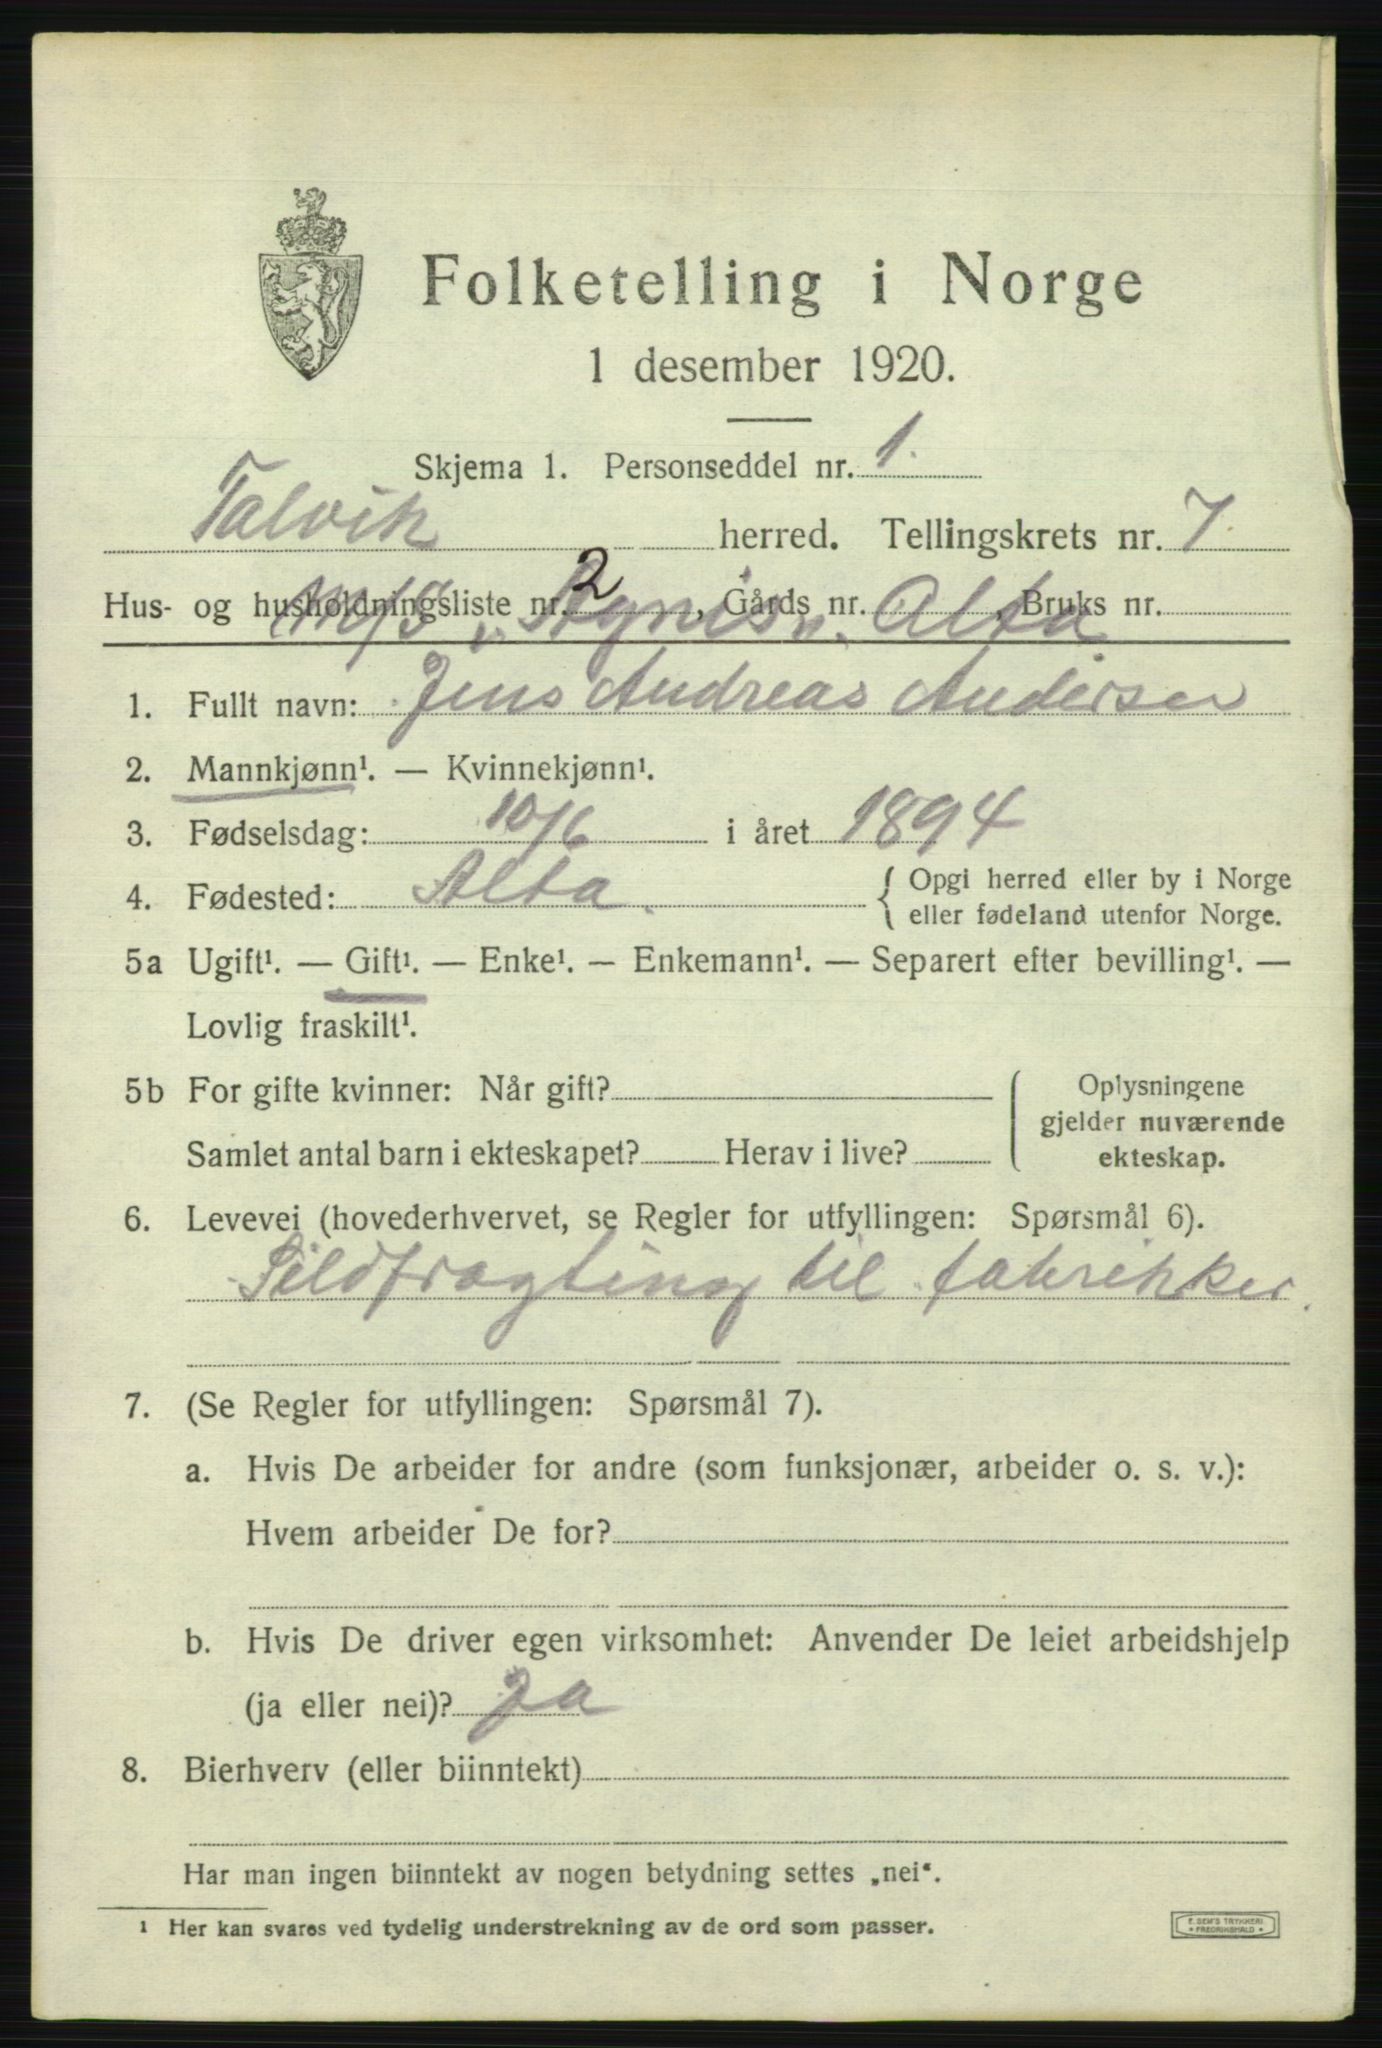 Folketelling i Norge
1 desember 1920.
Skjema 1. Personseddel nr. 1.
Talvik herred. Tellingskrets nr. 7.
Hus- og husholdningsliste nr. 2, Gårds nr. , Bruks nr.
M/S „Agnes“. Alta
1. Fullt navn: Jens Andreas Andersen
2. Mannkjønn¹. — Kvinnekjønn¹.
3. Fødselsdag: 10/6 i året 1894
4. Fødested: Alta. { Opgi herred eller by i Norge
eller fødeland utenfor Norge.
5a Ugift¹. — Gift¹. — Enke¹. — Enkemann¹. — Separert efter bevilling¹. —
Lovlig fraskilt¹.
5b For gifte kvinner: Når gift?
Samlet antal barn i ekteskapet? Herav i live?
Oplysningene
gjelder nuværende
ekteskap.
6. Levevei (hovederhvervet, se Regler for utfyllingen: Spørsmål 6).
Sildfragting til fabrikker.
7. (Se Regler for utfyllingen: Spørsmål 7).
a. Hvis De arbeider for andre (som funksjonær, arbeider o. s. v.):
Hvem arbeider De for?
b. Hvis De driver egen virksomhet: Anvender De leiet arbeidshjelp
(ja eller nei)? Ja
8. Bierhverv (eller biinntekt)
Har man ingen biinntekt av nogen betydning settes „nei“.
¹ Her kan svares ved tydelig understrekning av de ord som passer.
E. SEM'S TRYKKERI
• FREDRIKSHALD •